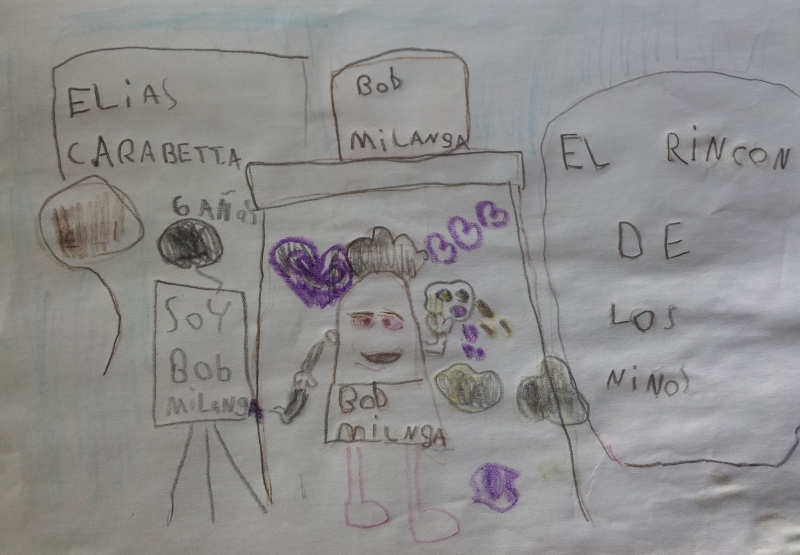 ELiAS
CARABETTA
6 AÑOS
BOb
MiLANGA
EL RiNCON
DE
LOS
NiNOS
SOY
BOb
MiLANGA
BOb
MiLNGA